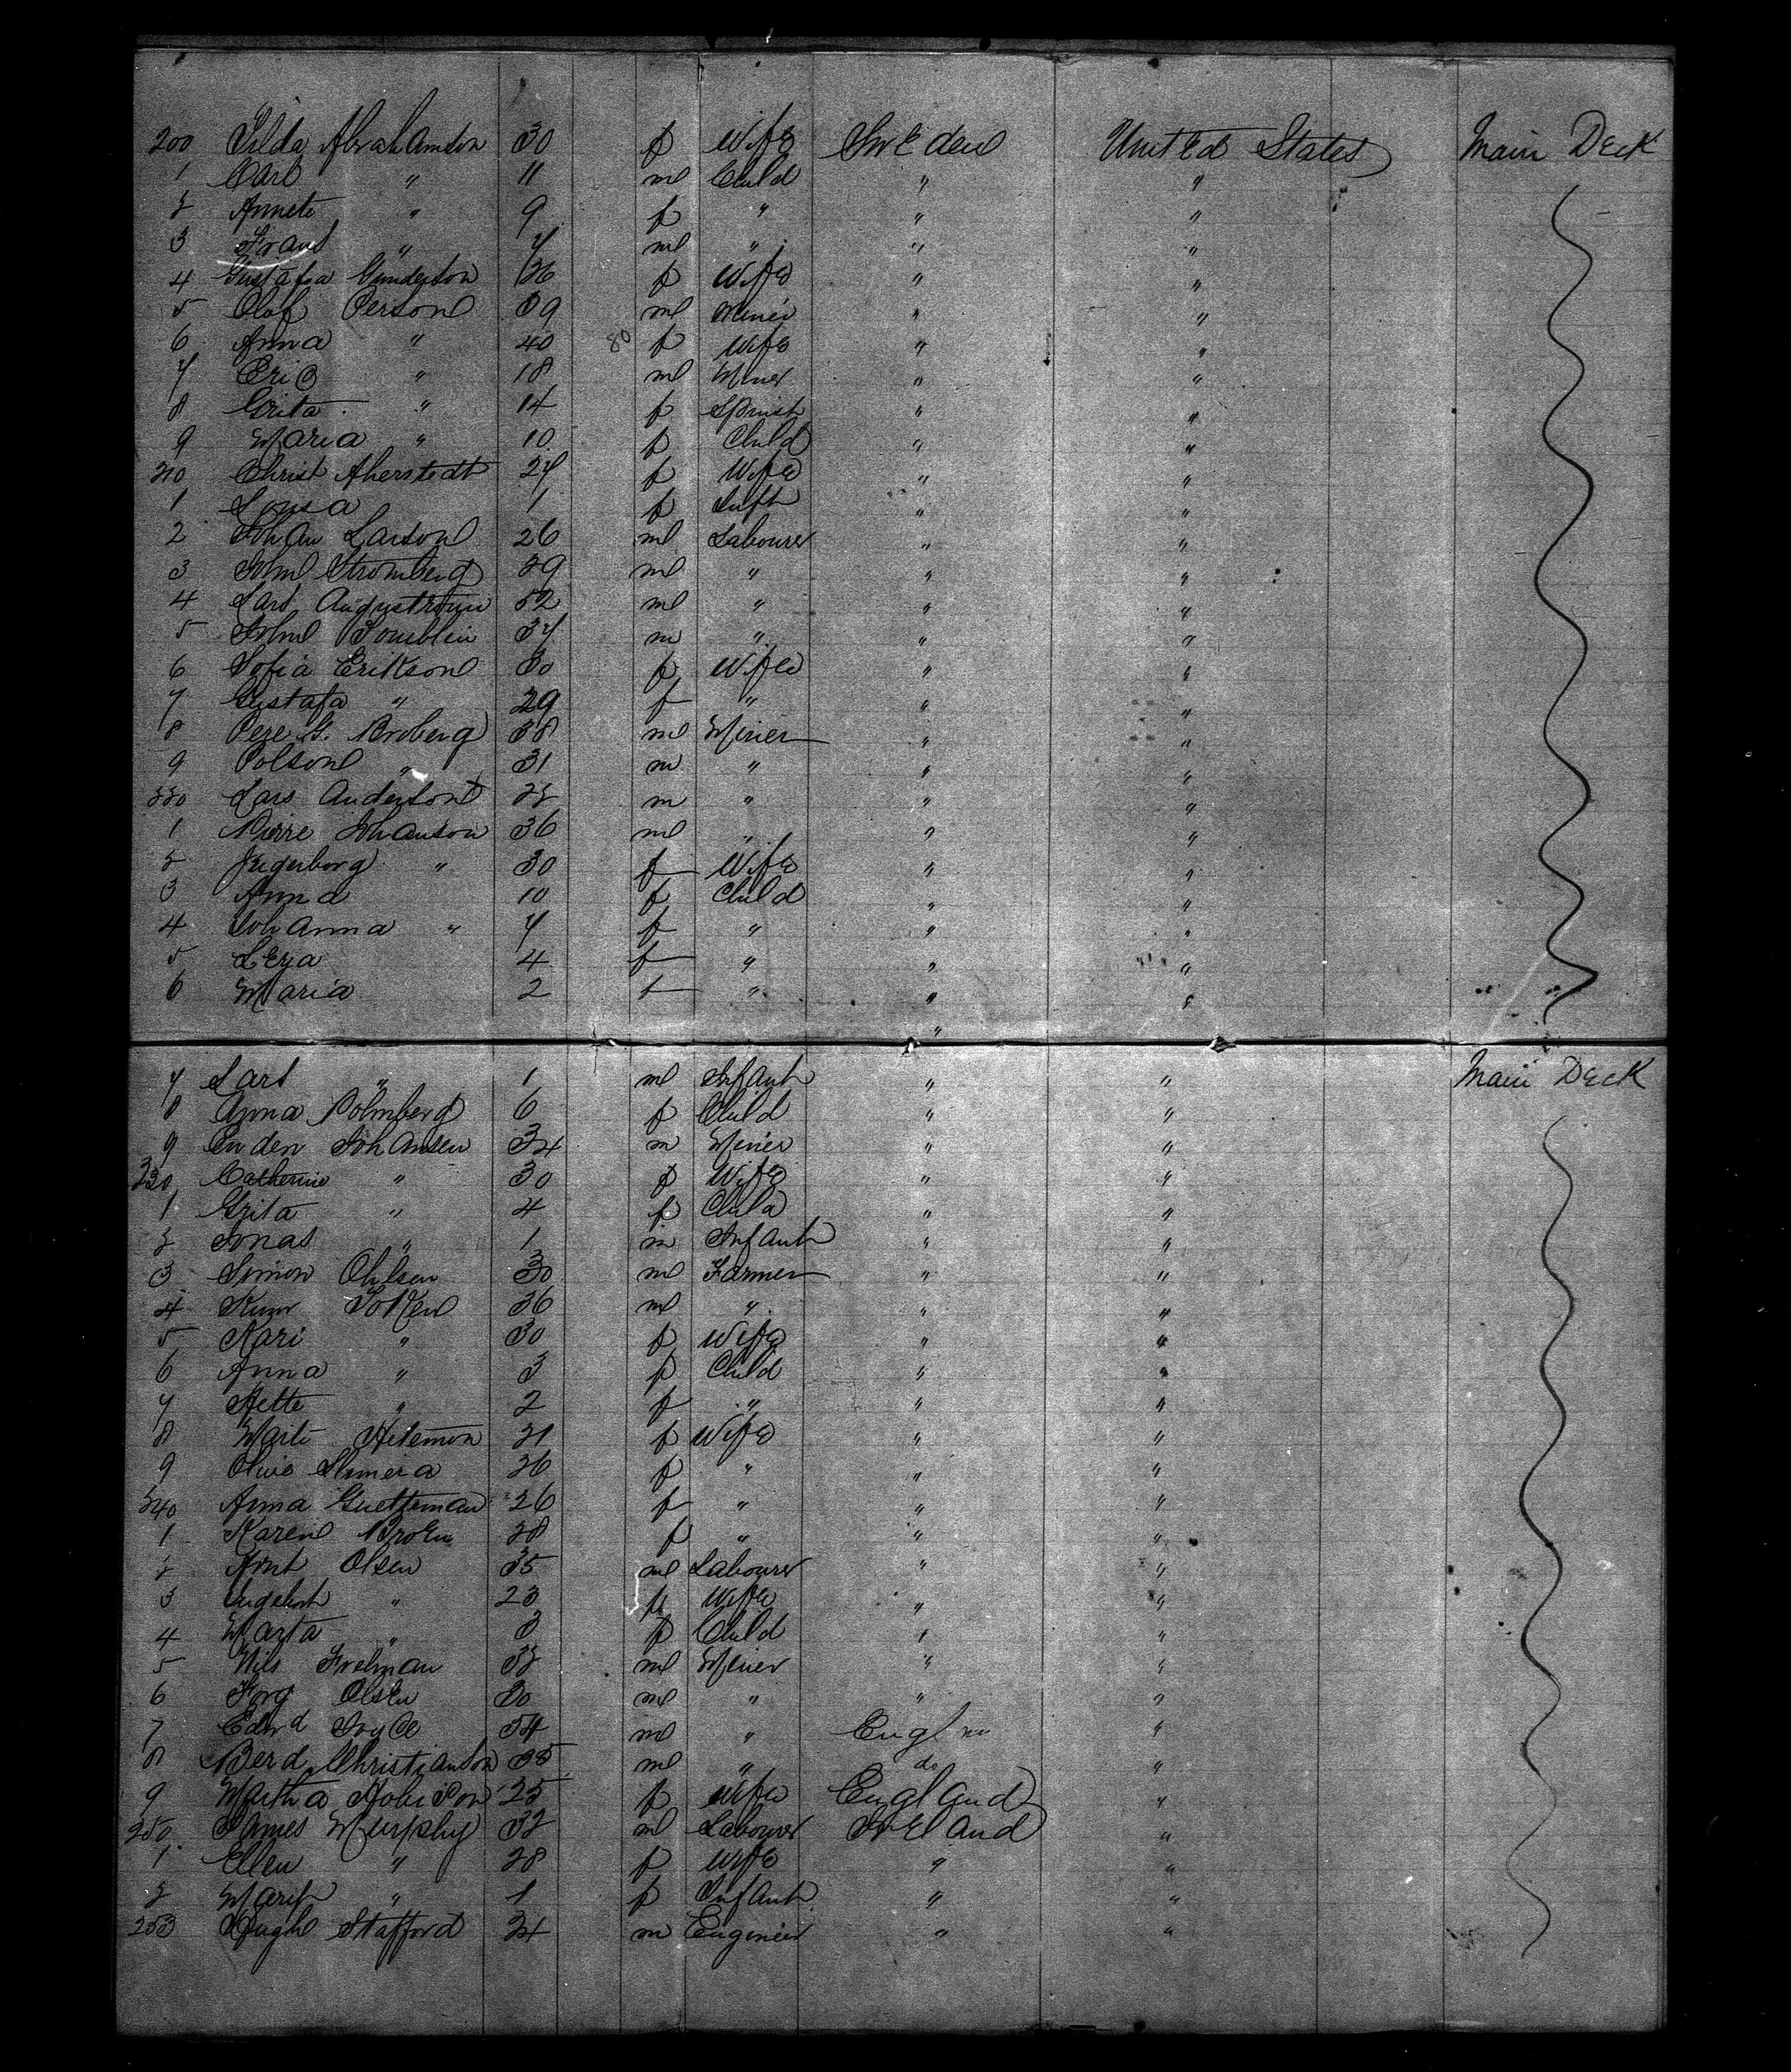 200 Tilda Abrahamson 30 f Wife Sweden United States Main Deck
1 Carl " 11 m Child " "
2 Annete " 9 f " " "
3 Frans " 7 m " " "
4 Gustafva Gunderson 26 f Wife " "
5 Olof Person 39 m Miner " "
6 Anna " 40 80 f Wife " "
7 Eric " 18 m Miner " "
8 Grita " 14 f Spinst " "
9 Maria " 10 f Child " "
210 Christ Aherstedt 27 f Wife " "
1 Lousa 1 f Inft " "
2 Johan Larson 26 m Labourer " "
3 John Stromberg 29 m " " "
4 Lars 52 m " " "
5 John 37 m " " "
6 Sofia Erikson 30 f Wife " "
7 Gustafa " 29 f " " "
8 Pere G. Broberg 38 m Miner " "
9 Polson " 31 m " " "
220 Lars Anderson 22 m " " "
1 Pierre Johanson 36 m " " "
2 Ingerborg " 30 f Wife " "
3 Anna 10 f Child " "
4 Johanna " 7 f " " "
5 Leza 4 f " " "
6 Maria 2 f " " "
"
7 Lars " 1 m Infant " " Main Deck
8 Anna Holmberg 6 f Child " "
9 Johansen 34 m Miner " "
230 Catherine " 30 f Wife " "
1 Grita " 4 f Child " "
2 Jonas " 1 m Infant " "
3 Simon Ohlsen 30 m Farmer " "
4 36 m " " "
5 Kari " 30 f Wife " "
6 Anna " 3 f Child " "
7 " 2 f " " "
8 31 f Wife " "
9 26 f " " "
240 Anna 26 f " " "
1 Karen Broen 28 f " " "
2 Arnt Olsen 35 m Labourer " "
3 " 23 f Wife " "
4 Marta " 3 f Child " "
5 Nils Frelman 32 m Miner " "
6 Olsen 30 m " " "
7 Edwd Joyce 54 m " Engl "
8 Bernd Christianson 35 m " do "
9 Martha Robison 25 f Wife England "
250 James Murphy 32 m Labourer Ireland "
1 Ellen " 28 f Wife " "
2 " 1 f Infant " "
253 Hugh Stafford 34 m Engineer " "